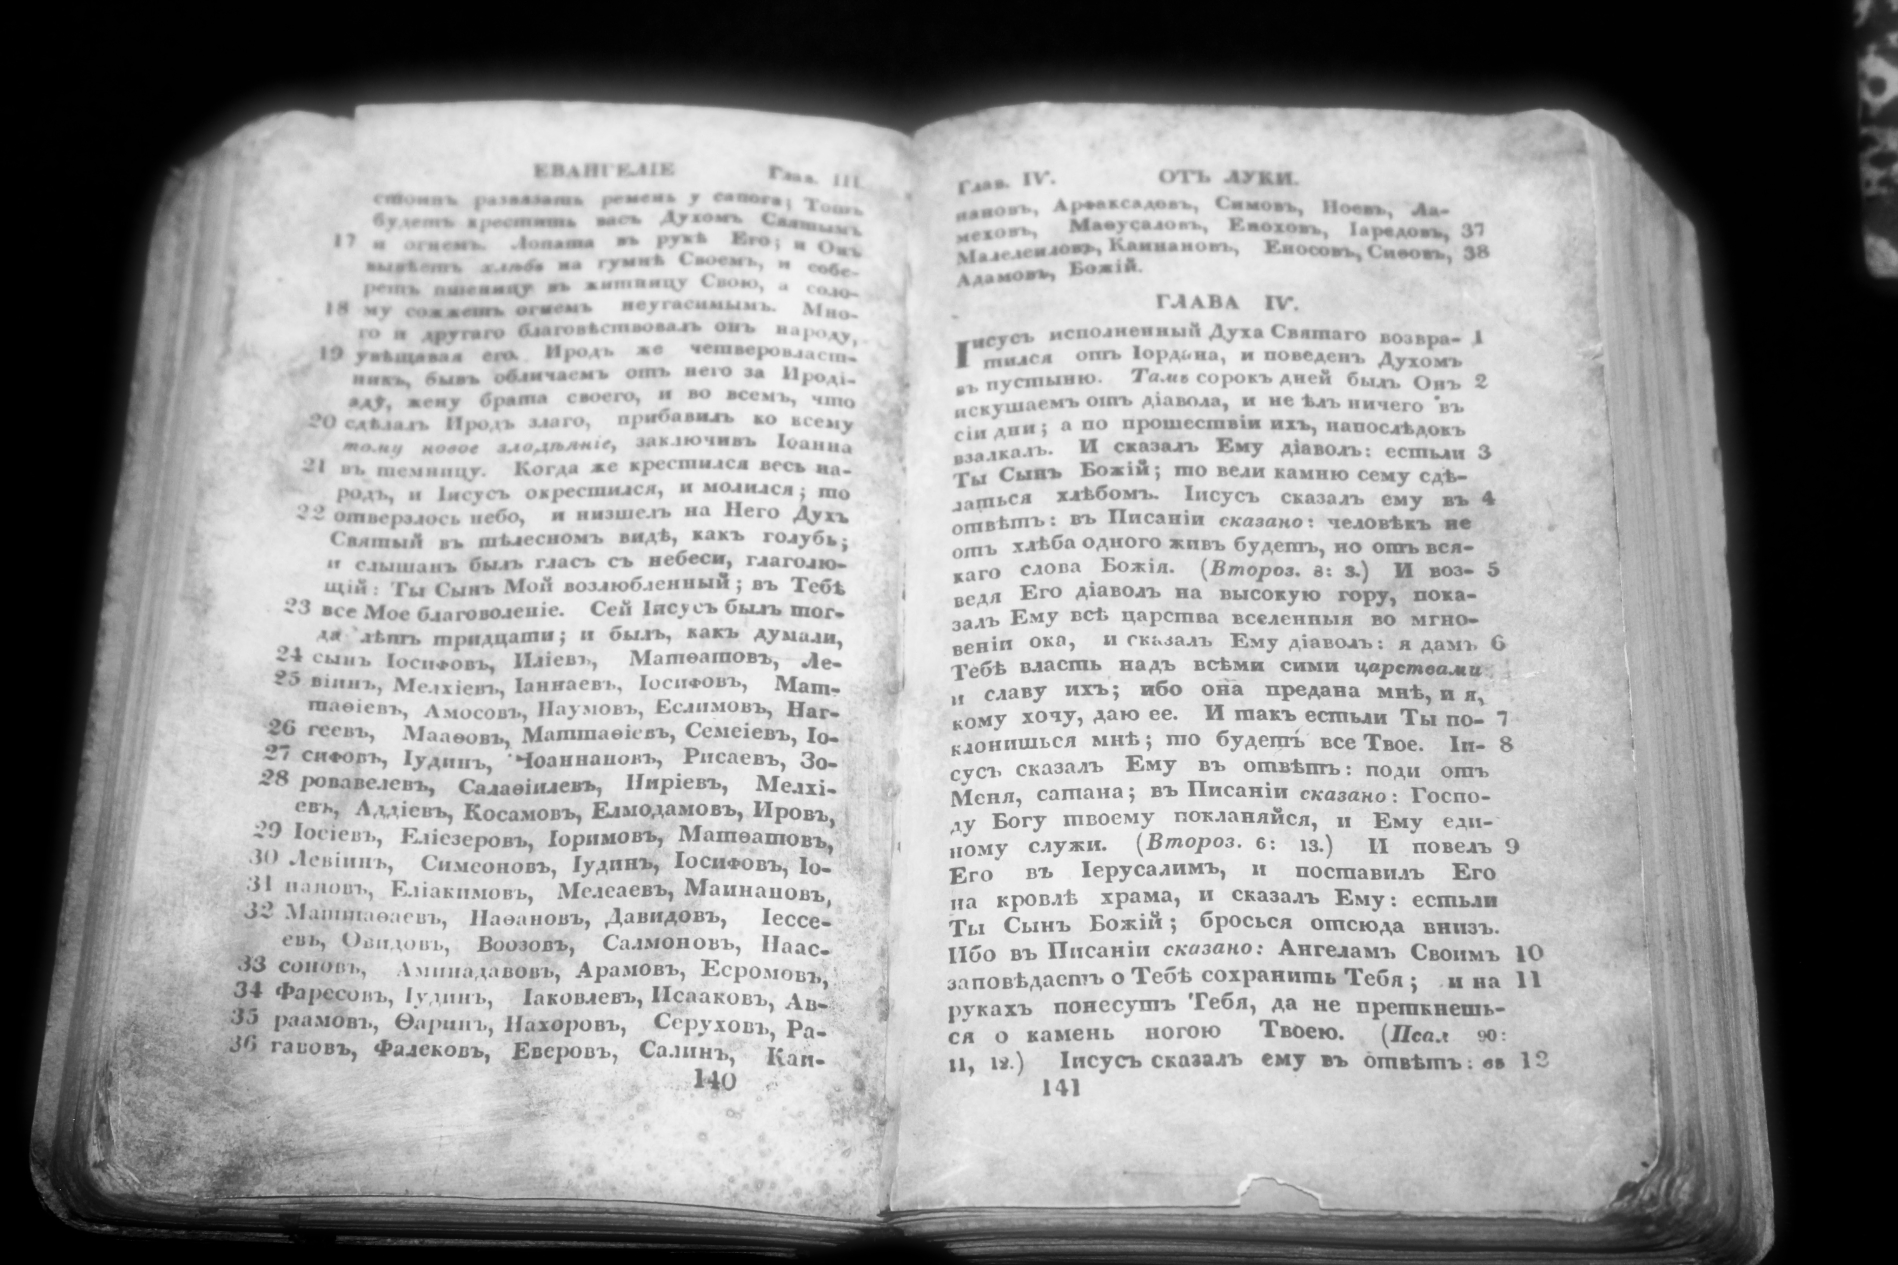 ЕВАНГЕЛІЕ Глав. III.
стоинъ развязать ремень у сапога; Тотъ
будетъ крестить васъ Духомъ Святымъ
17 и огнемъ. Лопата въ рукѣ Его; и Онъ
вывѣетъ хлѣбъ на гумнѣ Своемъ, и собе-
ретъ пшеницу въ житницу Свою, а соло-
18 му сожжетъ огнемъ неугасимымъ. Мно-
го и другаго благовѣствовалъ онъ народу,
19 увѣщавая его. Иродъ же четверовласт-
никъ, бывъ обличаемъ отъ него за Ироді-
аду, жену брата своего, и во всемъ, что
20 сдѣлалъ Иродъ злаго, прибавилъ ко всему
тому новое злодѣяніе, заключивъ Іоанна
21 въ темницу. Когда же крестился весь на-
родъ, и Іисусъ окрестился, и молился; то
22 отверзлось небо, и низшелъ на Него Духъ
Святый въ тѣлесномъ видѣ, какъ голубь;
и слышанъ былъ гласъ съ небеси, глаголю-
щій: Ты Сынъ Мой возлюбленный; въ Тебѣ
23 все Мое благоволеніе. Сей Іисусъ былъ тог-
да лѣтъ тридцати; и былъ, какъ думали,
24 сынъ Іосифовъ, Иліевъ, Матѳатовъ, Ле-
25 віинъ, Мелхіевъ, Іаннаевъ, Іосифовъ, Мат-
таѳіевъ, Амосовъ, Наумовъ, Еслимовъ, Наг-
26 геевъ, Мааѳовъ, Маттаѳіевъ, Семеіевъ, Іо-
27 сифовъ, Іудинъ, Іоаннановъ, Рисаевъ, Зо-
28 ровавелевъ, Салаѳіилевъ, Ниріевъ, Мелхі-
евъ, Аддіевъ, Косамовъ, Елмодамовъ, Ировъ,
29 Іосіевъ, Еліезеровъ, Іоримовъ, Матѳатовъ,
30 Левіинъ, Симеоновъ, Іудинъ, Іосифовъ, Іо-
31 нановъ, Еліакимовъ, Мелеаевъ, Маинановъ,
32 Маттаѳаевъ, Наѳановъ, Давидовъ, Іессе-
евъ, Овидовъ, Воозовъ, Салмоновъ, Наас-
33 соновъ, Аминадавовъ, Арамовъ, Есромовъ,
34 Фаресовъ, Іудинъ, Іаковлевъ, Исааковъ, Ав-
35 раамовъ, Ѳаринъ, Нахоровъ, Серуховъ, Ра-
36 гавовъ, Фалековъ, Еверовъ, Салинъ, Каи-
140
Глав. IV. ОТЪ ЛУКИ.
нановъ, Арфаксадовъ, Симовъ, Ноевъ, Ла-
меховъ, Маѳусаловъ, Еноховъ, Іаредовъ, 37
Малелеиловъ, Каинановъ, Еносовъ, Сиѳовъ, 38
Адамовъ, Божій.
ГЛАВА IV.
Іисусъ исполненный Духа Святаго возвра- 1
тился отъ Іордана, и поведенъ Духомъ
въ пустыню. Тамъ сорокъ дней былъ Онъ 2
искушаемъ отъ діавола, и не ѣлъ ничего въ
сіи дни; а по прошествіи ихъ, напослѣдокъ
взалкалъ. И сказалъ Ему діаволъ: естьли 3
Ты Сынъ Божій; то вели камню сему сдѣ-
латься хлѣбомъ. Іисусъ сказалъ ему въ 4
отвѣтъ: въ Писаніи сказано: человѣкъ не
отъ хлѣба одного живъ будетъ, но отъ вся-
каго слова Божія. (Второз. 8: 3.) И воз- 5
ведя Его діаволъ на высокую гору, пока-
залъ Ему всѣ царства вселенныя во мгно-
веніи ока, и сказалъ Ему діаволъ: я дамъ 6
Тебѣ власть надъ всѣми сими царствами
и славу ихъ; ибо она предана мнѣ, и я,
кому хочу, даю ее. И такъ естьли Ты по- 7
клонишься мнѣ; то будетъ все Твое. Іи- 8
сусъ сказалъ Ему въ отвѣтъ: поди отъ
Меня, сатана; въ Писаніи сказано: Госпо-
ду Богу твоему покланяйся, и Ему еди-
ному служи. (Второз. 6: 13.) И повелъ 9
Его въ Іерусалимъ, и поставилъ Его
на кровлѣ храма, и сказалъ Ему: естьли
Ты Сынъ Божій; бросься отсюда внизъ.
Ибо въ Писаніи сказано: Ангеламъ Своимъ 10
заповѣдаетъ о Тебѣ сохранить Тебя; и на 11
рукахъ понесутъ Тебя, да не преткнешь-
ся о камень ногою Твоею. (Псал 90:
11, 12.) Іисусъ сказалъ ему въ отвѣтъ: въ 12
141